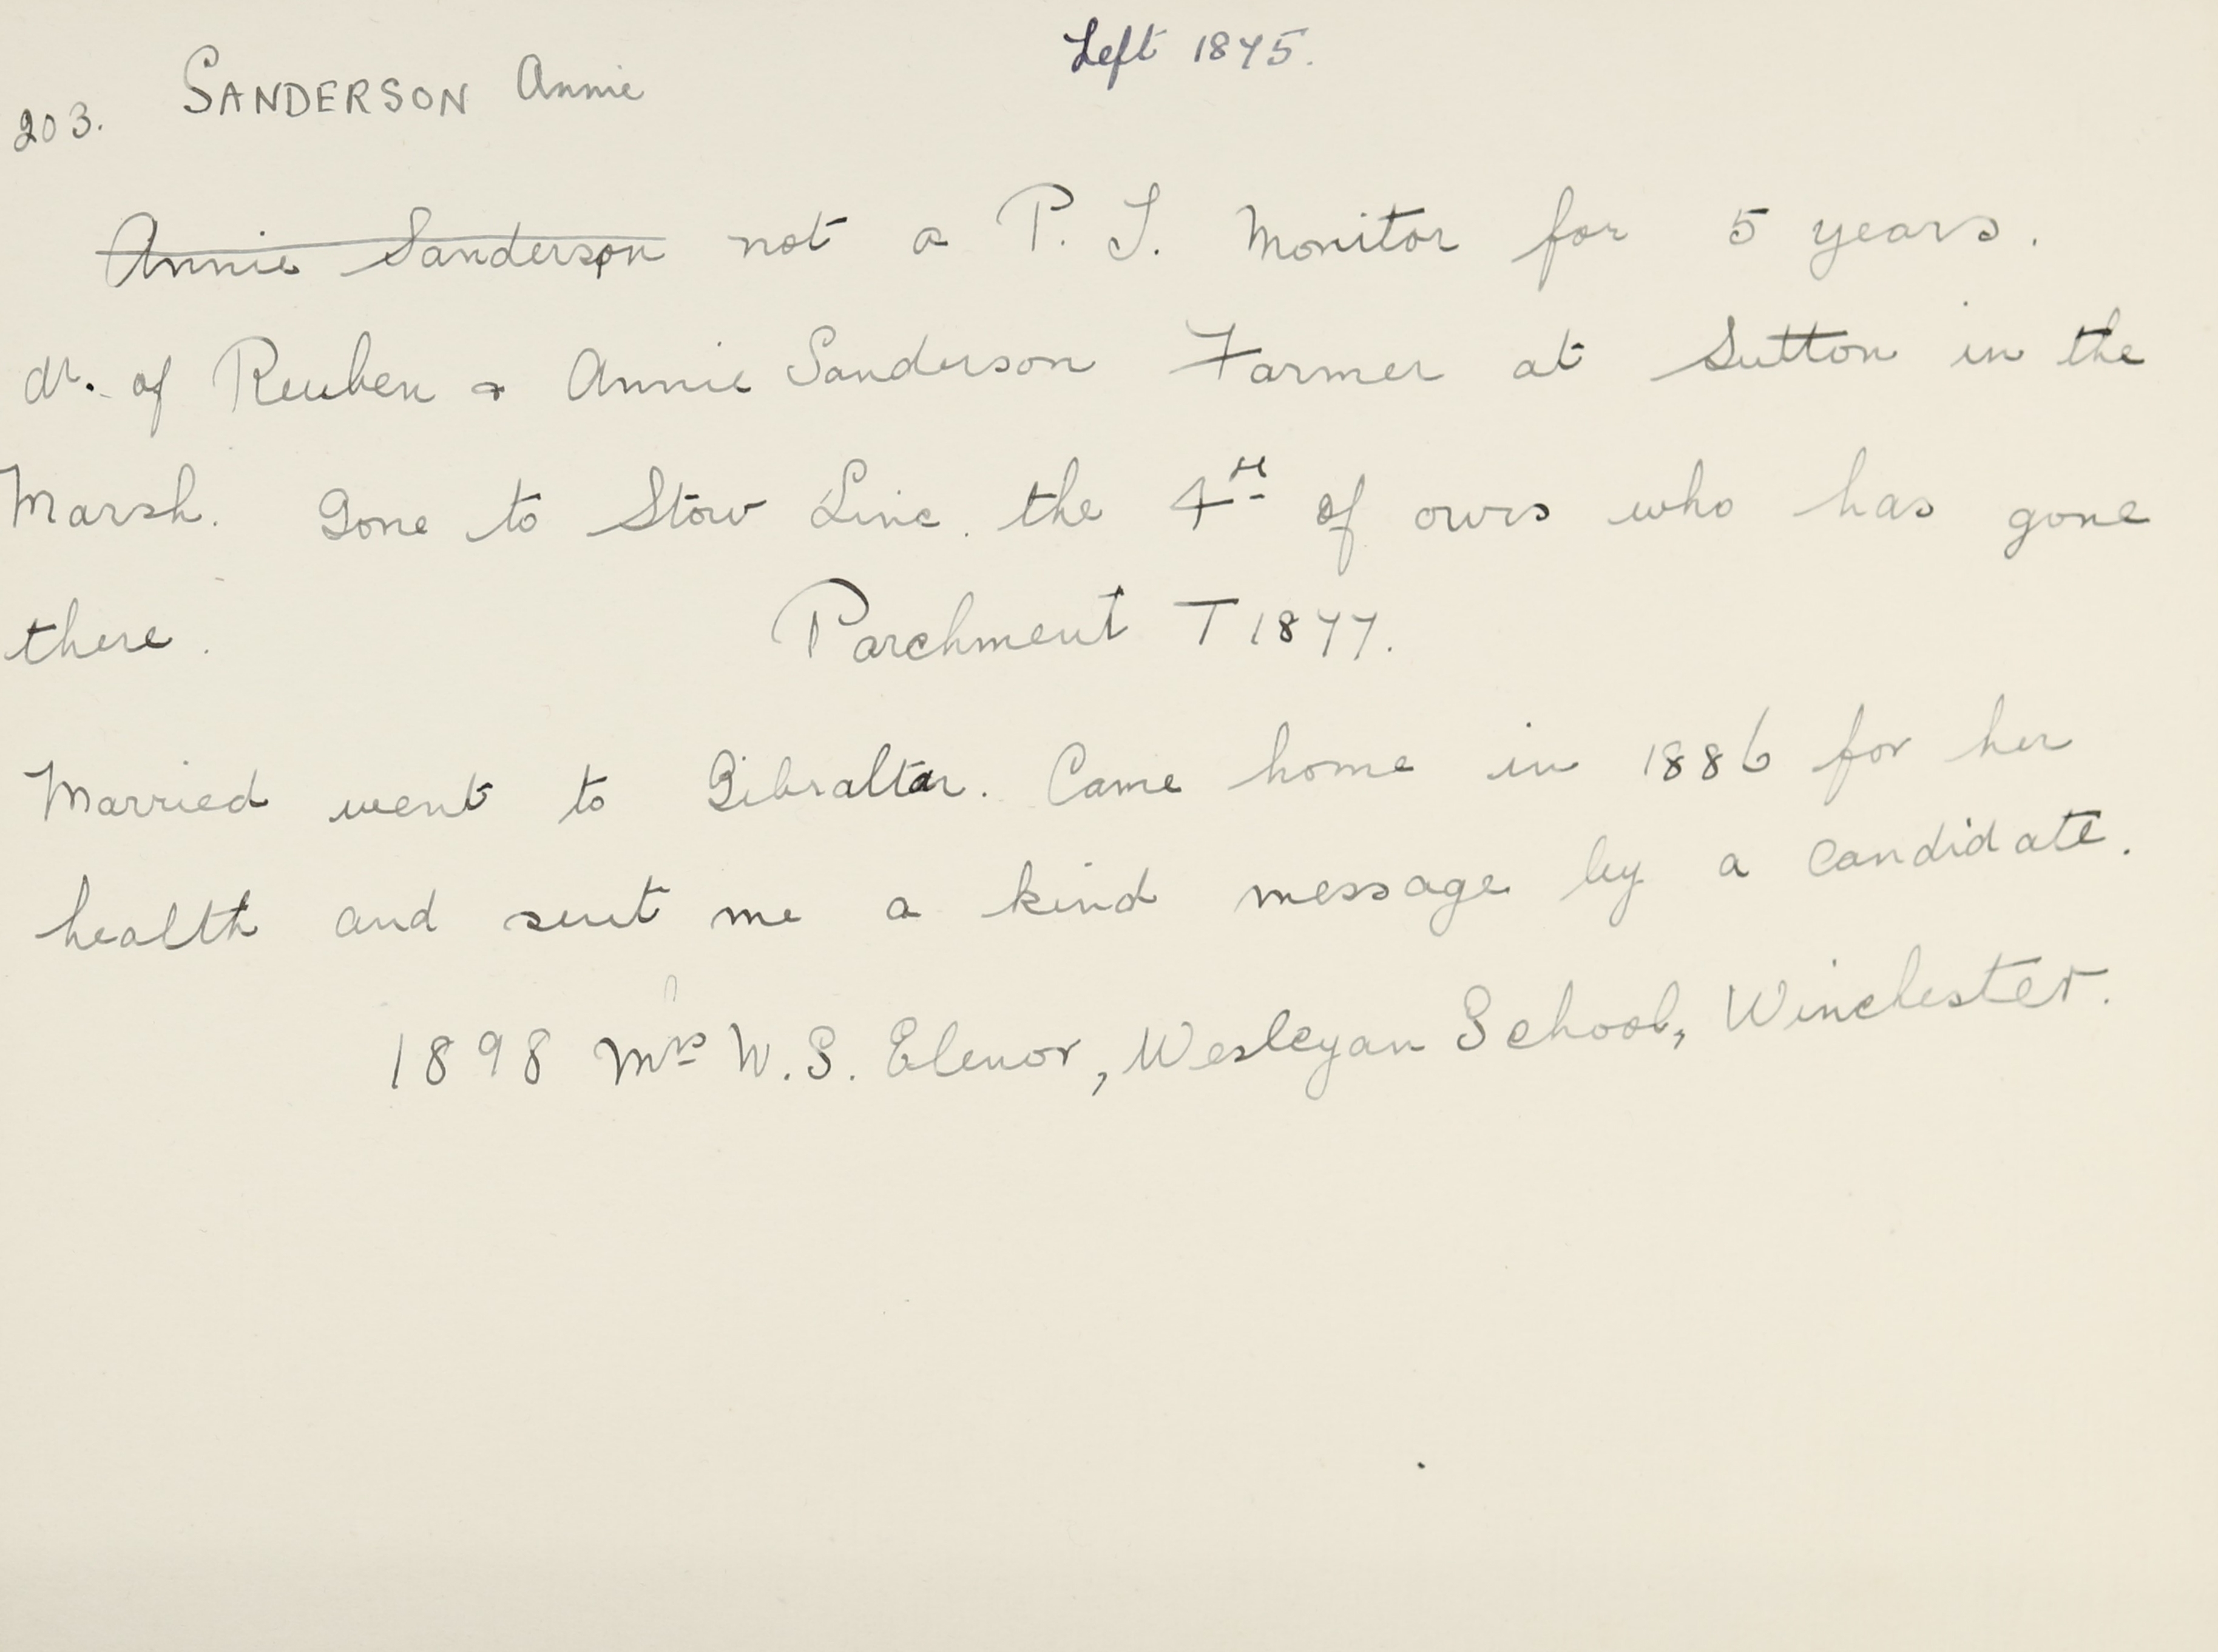 Left 1875.
203. SANDERSON Annie
Annie Sanderson not a P. T. Monitor for 5 years.
dr. of Reuben & Annie Sanderson Farmer at Sutton in the
Marsh. Gone to Stow Linc. the 4th of ours who has gone
there. Parchment T 1877.
Married went to Gibraltar. Came home in 1886 for her
health and sent me a kind message by a candidate.
1898 Mrs W. S. Elenor, Wesleyan School, Winchester.